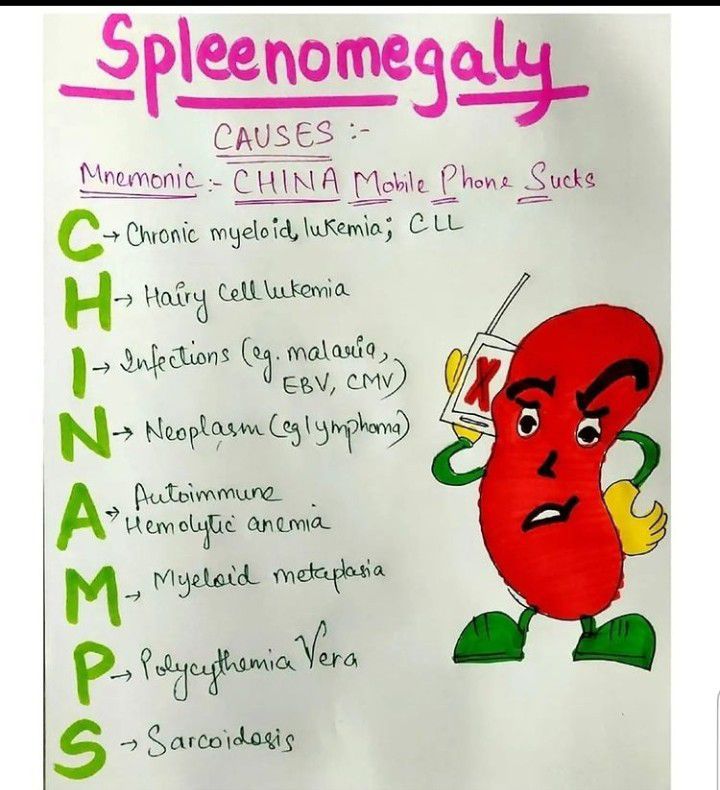 Spleenomegaly
CAUSES :-
Mnemonic :- CHINA Mobile Phone Sucks
C → Chronic myeloid lukemia; CLL
H → Hairy Cell lukemia
I → Infections (eg. malaria,
EBV, CMV)
N → Neoplasm (eg lymphoma)
A → Autoimmune
Hemolytic anemia
M → Myeloid metaplasia
P → Polycythemia Vera
S → Sarcoidosis
X